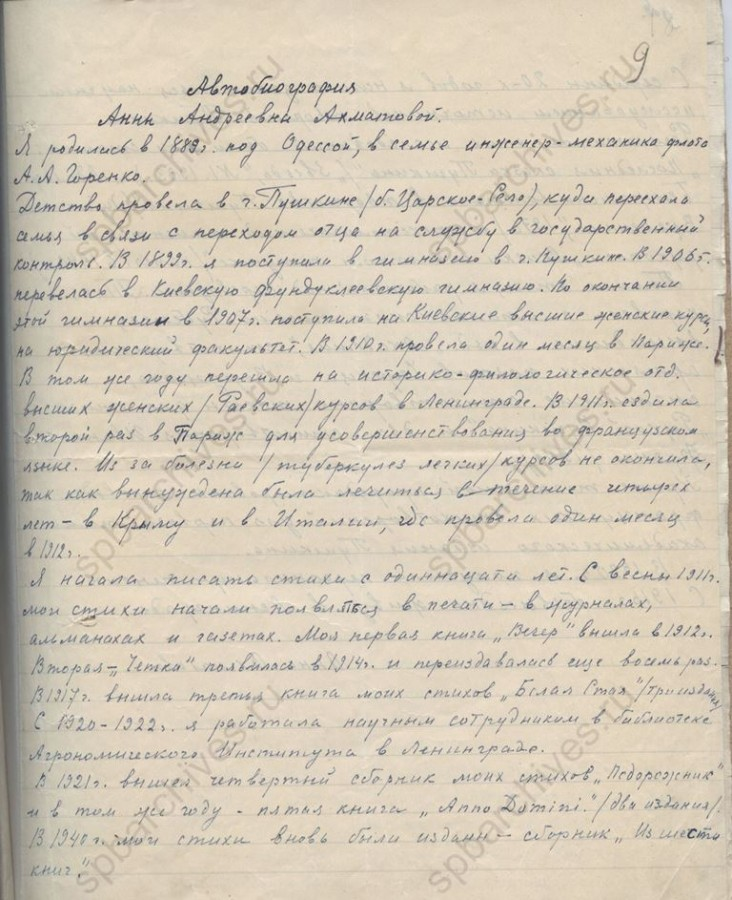 9
Автобиография
Анны Андреевны Ахматовой.
Я родилась в 1889г. под Одессой, в семье инженер-механика флота
А.А. Горенко.
Детство провела в г. Пушкине /б. Царское-Село/, куда переехала
семья в связи с переходом отца на службу в государственный
контроль. В 1899г. я поступила в гимназию в г. Пушкине. В 1906г.
перевелась в Киевскую фундуклеевскую гимназию. По окончании
этой гимназии в 1907г. поступила на Киевские высшие женские курсы,
на юридический факультет. В 1910г. провела один месяц в Париже.
В том же году перешла на историко-филологическое отд.
высших женских /Раевских/ курсов в Ленинграде. В 1911г. ездила
второй раз в Париж для усовершенствования во французском
языке. Из за болезни /туберкулез легких/ курсов не окончила,
так как вынуждена была лечиться в течение четырех
лет – в Крыму и в Италии, где провела один месяц
в 1912г.
Я начала писать стихи с одиннацати лет. С весны 1911г.
мои стихи начали появляться в печати – в журналах,
альманахах и газетах. Моя первая книга „Вечер" вышла в 1912г.
Вторая – „Четки" появилась в 1914г. и переиздавалась еще восемь раз.
В 1917г. вышла третья книга моих стихов „Белая Стая" /три издания/
С 1920-1922г. я работала научным сотрудником в библиотеке
Агрономического Института в Ленинграде.
В 1921г. вышел четвертый сборник моих стихов „Подорожник"
и в том же году - пятая книга „Anno Domini." /два издания/.
В 1940г. мои стихи вновь были изданы – сборник „Из шести
книг".
spbarchives.ru